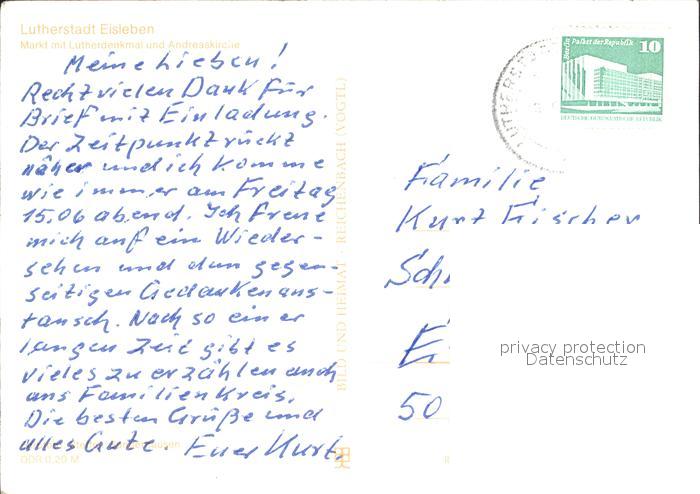 Lutherstadt Eisleben
Markt mit Lutherdenkmal und Andreaskirche
Meine Lieben!
Recht vielen Dank für
Brief mit Einladung.
Der Zeitpunkt rückt
näher und ich komme
wie immer am Freitag
15.06 abend. Ich freue
mich auf ein Wieder-
sehen und den gegen-
seitigen Gedankenaus-
tausch. Nach so einer
langen Zeit gibt es
vieles zu erzählen auch
aus Familienkreis.
Die besten Grüße und
alles Gute. Euer Kurt.
DDR 0,20 M
BILD UND HEIMAT · REICHENBACH (VOGTL)
Berlin Palast der Republik 10
DEUTSCHE DEMOKRATISCHE REPUBLIK
Familie
Kurt Fischer
Sch
Ei
50
privacy protection
Datenschutz